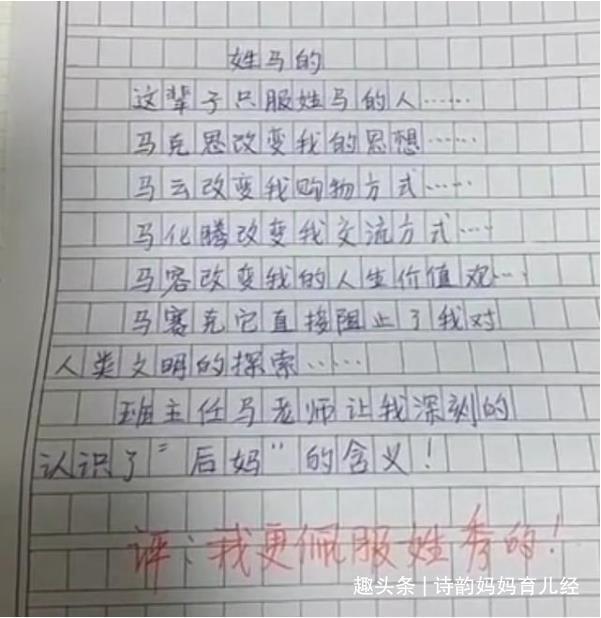 姓马的
这辈子只服姓马的人……
马克思改变我的思想……
马云改变我购物方式……
马化腾改变我交流方式……
马客改变我的人生价值观…
马赛克它直接阻止了我对
人类文明的探索……
班主任马老师让我深刻的
认识了"后妈"的含义！
评：我更佩服姓秀的！
趣头条 | 诗韵妈妈育儿经